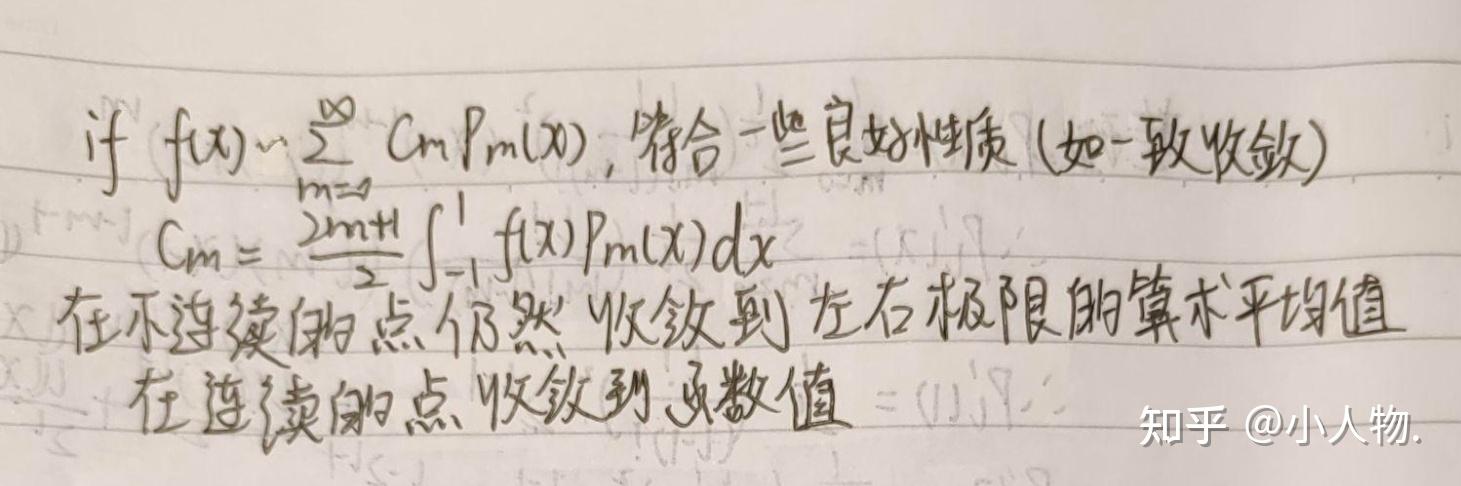 if f(x) ~ ∑_{m=0}^{∞} C_m P_m(x), 符合一些良好性质 (如一致收敛)
C_m = \frac{2m+1}{2} ∫_{-1}^{1} f(x) P_m(x) dx
在不连续的点仍然收敛到左右极限的算术平均值
在连续的点收敛到函数值
知乎 @小人物.